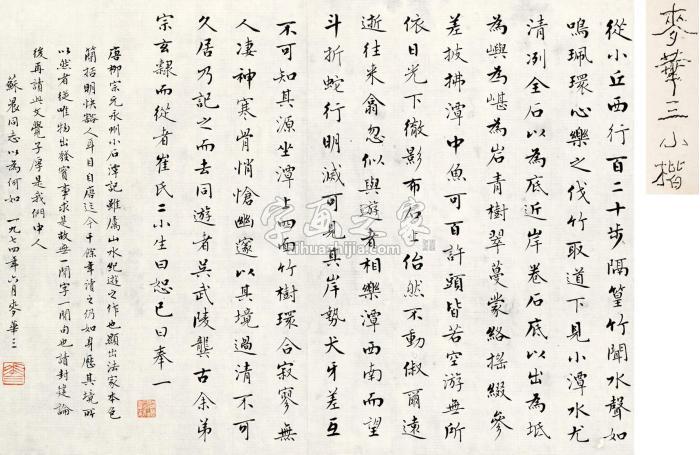 從小丘西行百二十步隔篁竹聞水聲如
鳴珮環心樂之伐竹取道下見小潭水尤
清冽全石以為底近岸卷石底以出為坻
為嶼為嵁為岩青樹翠蔓蒙絡搖綴參
差披拂潭中魚可百許頭皆若空游無所
依日光下徹影布石上佁然不動俶爾遠
逝往來翕忽似與遊者相樂潭西南而望
斗折蛇行明滅可見其岸勢犬牙差互
不可知其源坐潭上四面竹樹環合寂寥無
人凄神寒骨悄愴幽邃以其境過清不可
久居乃記之而去同遊者吳武陵龔古余弟
宗玄隸而從者崔氏二小生曰恕己曰奉一
唐柳宗元永州小石潭記雖屬山水紀遊之作也顯出法家本色
簡括明快豁人耳目自唐迄今千餘年讀之仍如身歷其境所
以然者從唯物出發實事求是故無一閒字一閒句也請封建論
後再讀此文覺子厚是我們中人
蘇晨同志以為何如 一九七四年六月麥華三
麥華三小楷
字画之家
zihuashijia.com